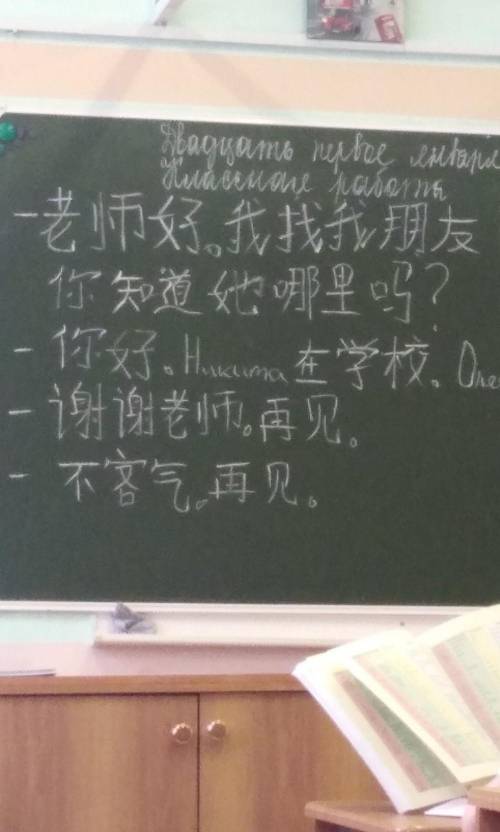 Двадцать первое января
Классная работа
－老师好。我找我朋友
你知道她哪里吗？
－你好。Никита 在学校. Оле
－谢谢老师。再见。
－不客气。再见。